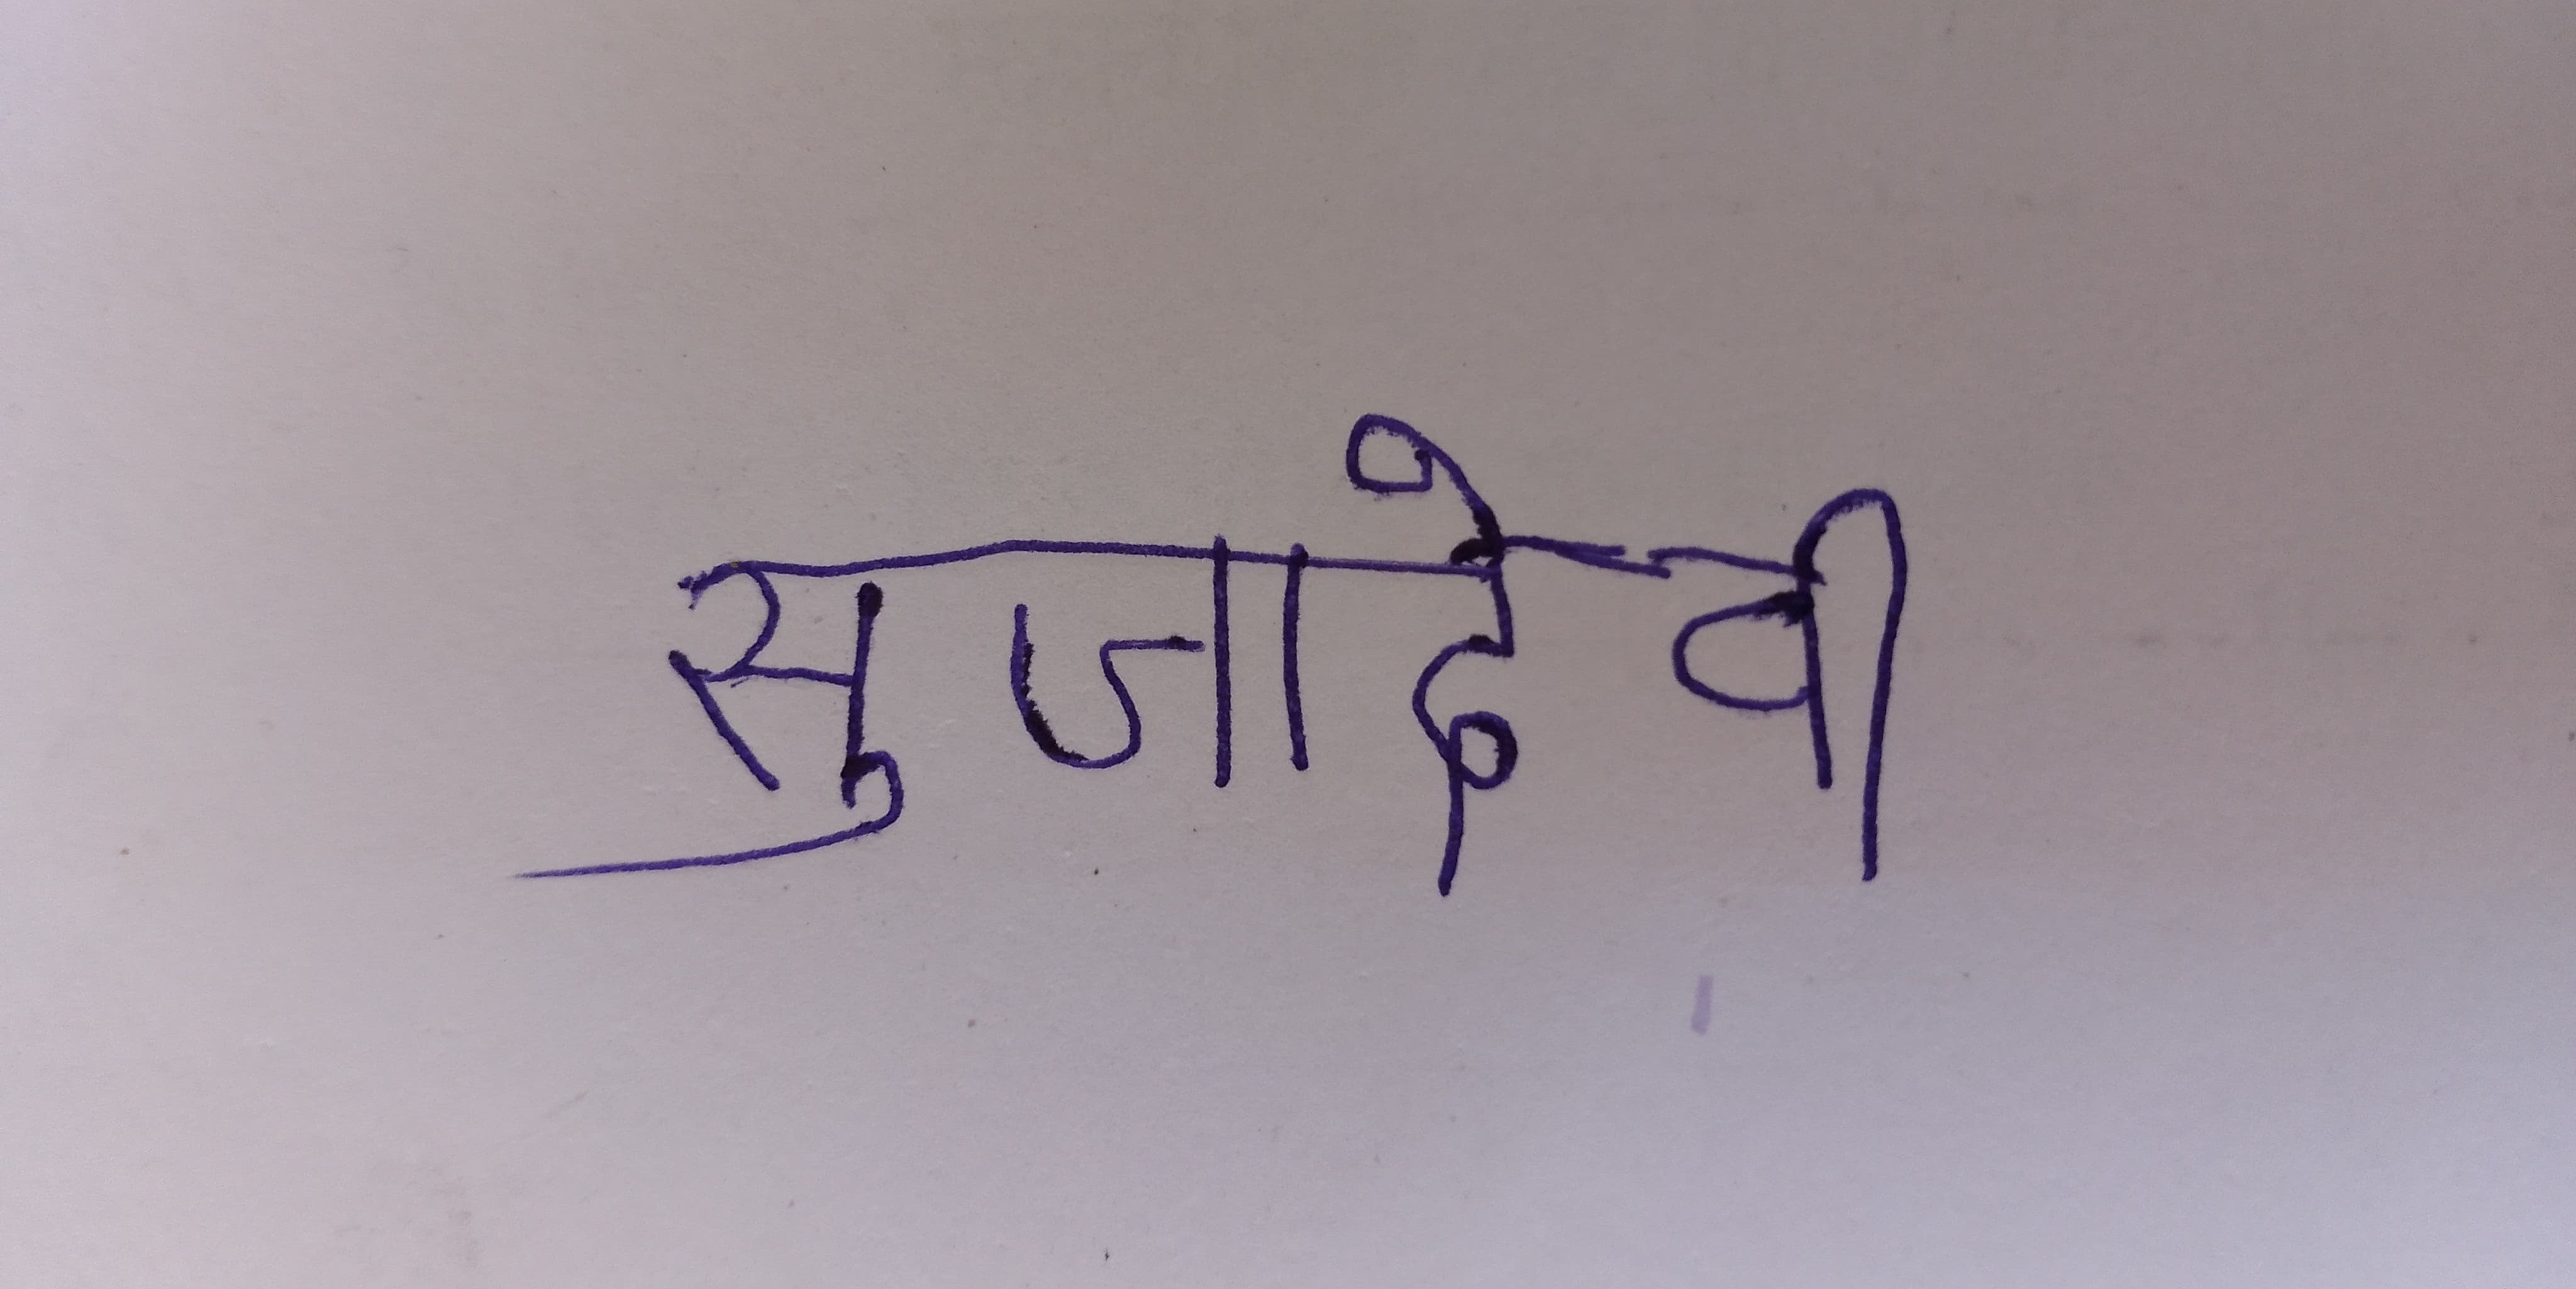 सुजादेवी